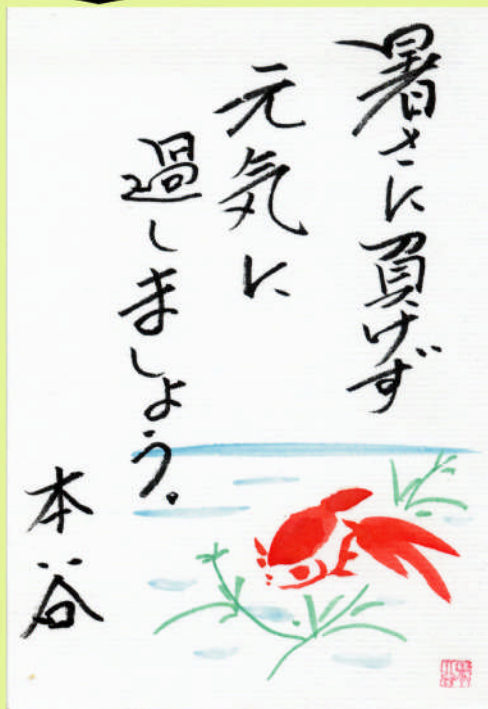 暑さに負けず
元気に
過しましょう。
本谷